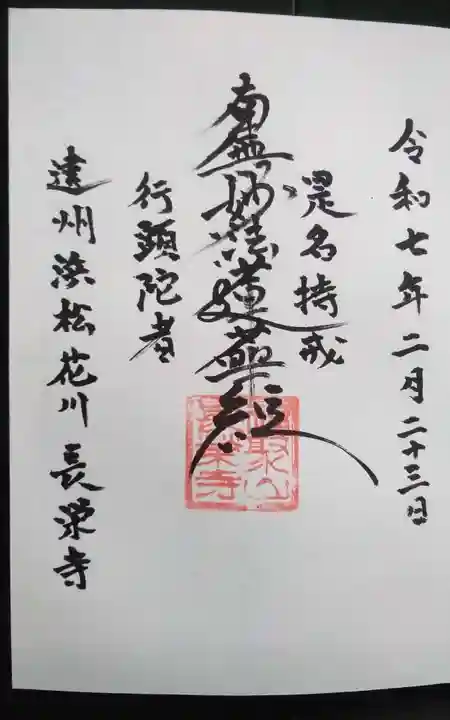 令和七年二月二十三日
是名持戒
南無妙法蓮華経
行頭陀者
遠州浜松花川 長栄寺
長栄寺